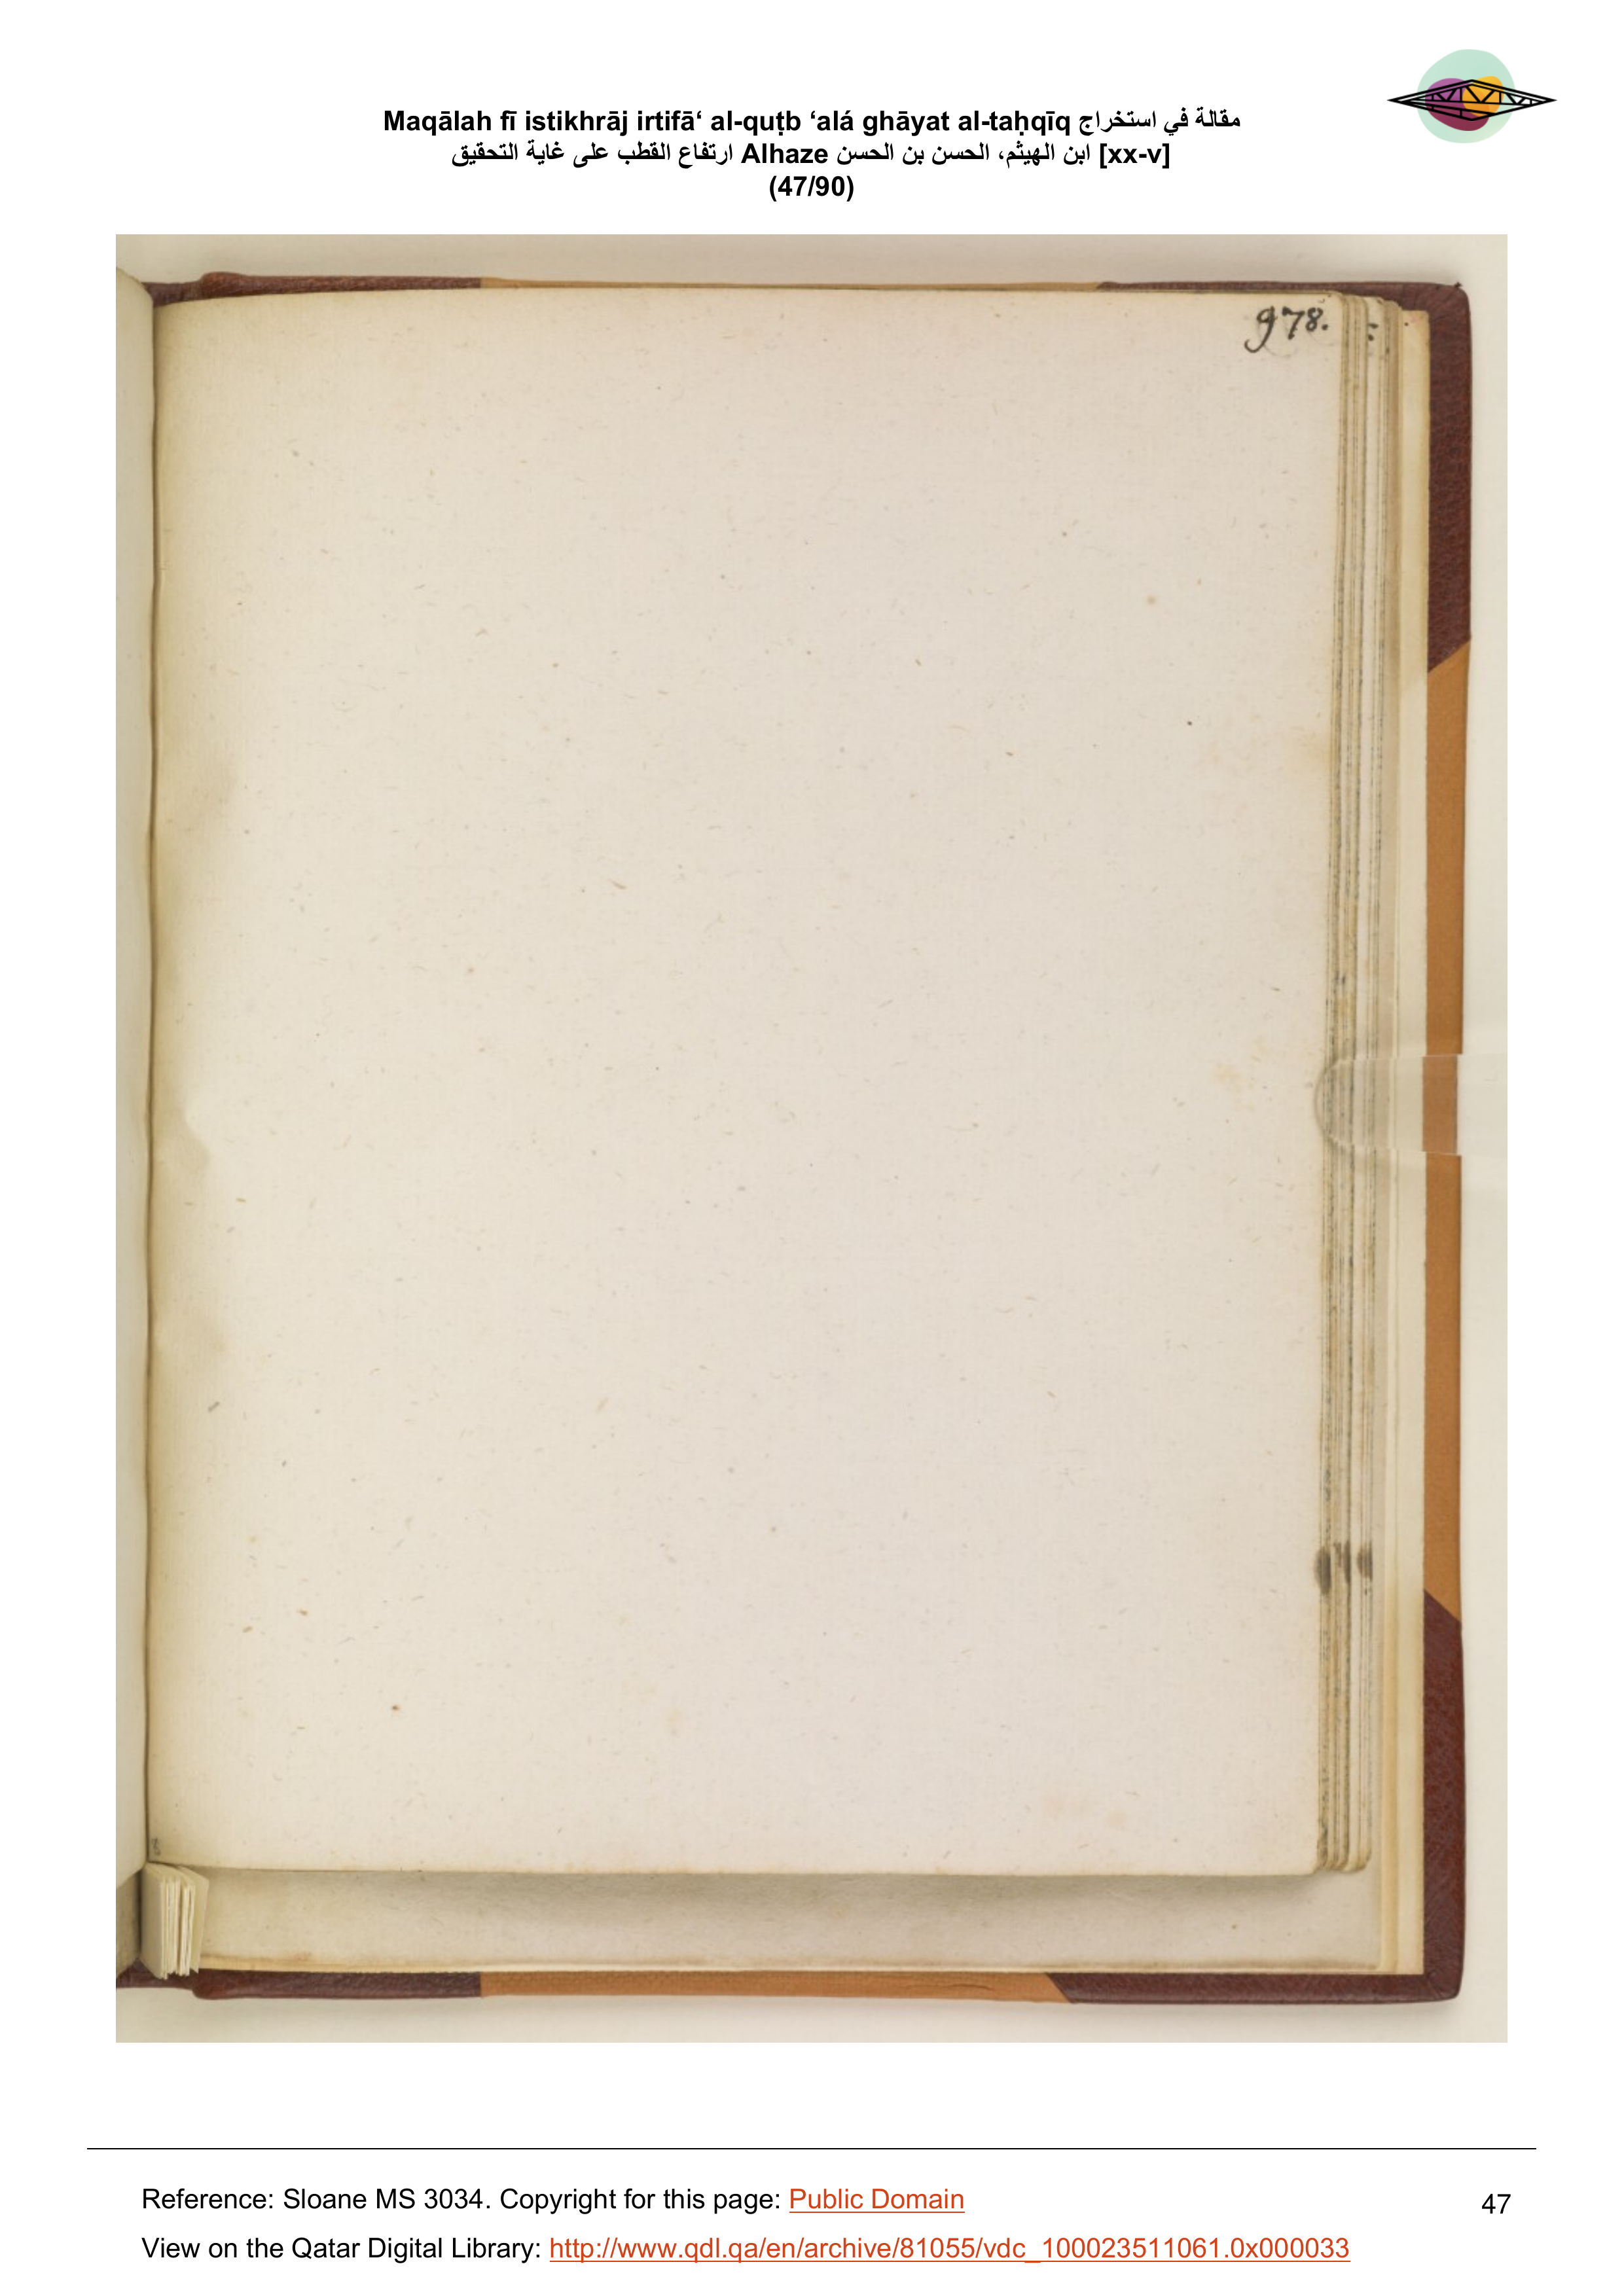 Maqālah fī istikhrāj irtifā‘ al-quṭb ‘alá ghāyat al-taḥqīq مقالة في استخراج
ارتفاع القطب على غاية التحقيق Alhaze ابن الهيثم، الحسن بن الحسن [xx-v]
(47/90)
978.
Reference: Sloane MS 3034. Copyright for this page: Public Domain
47
View on the Qatar Digital Library: http://www.qdl.qa/en/archive/81055/vdc_100023511061.0x000033